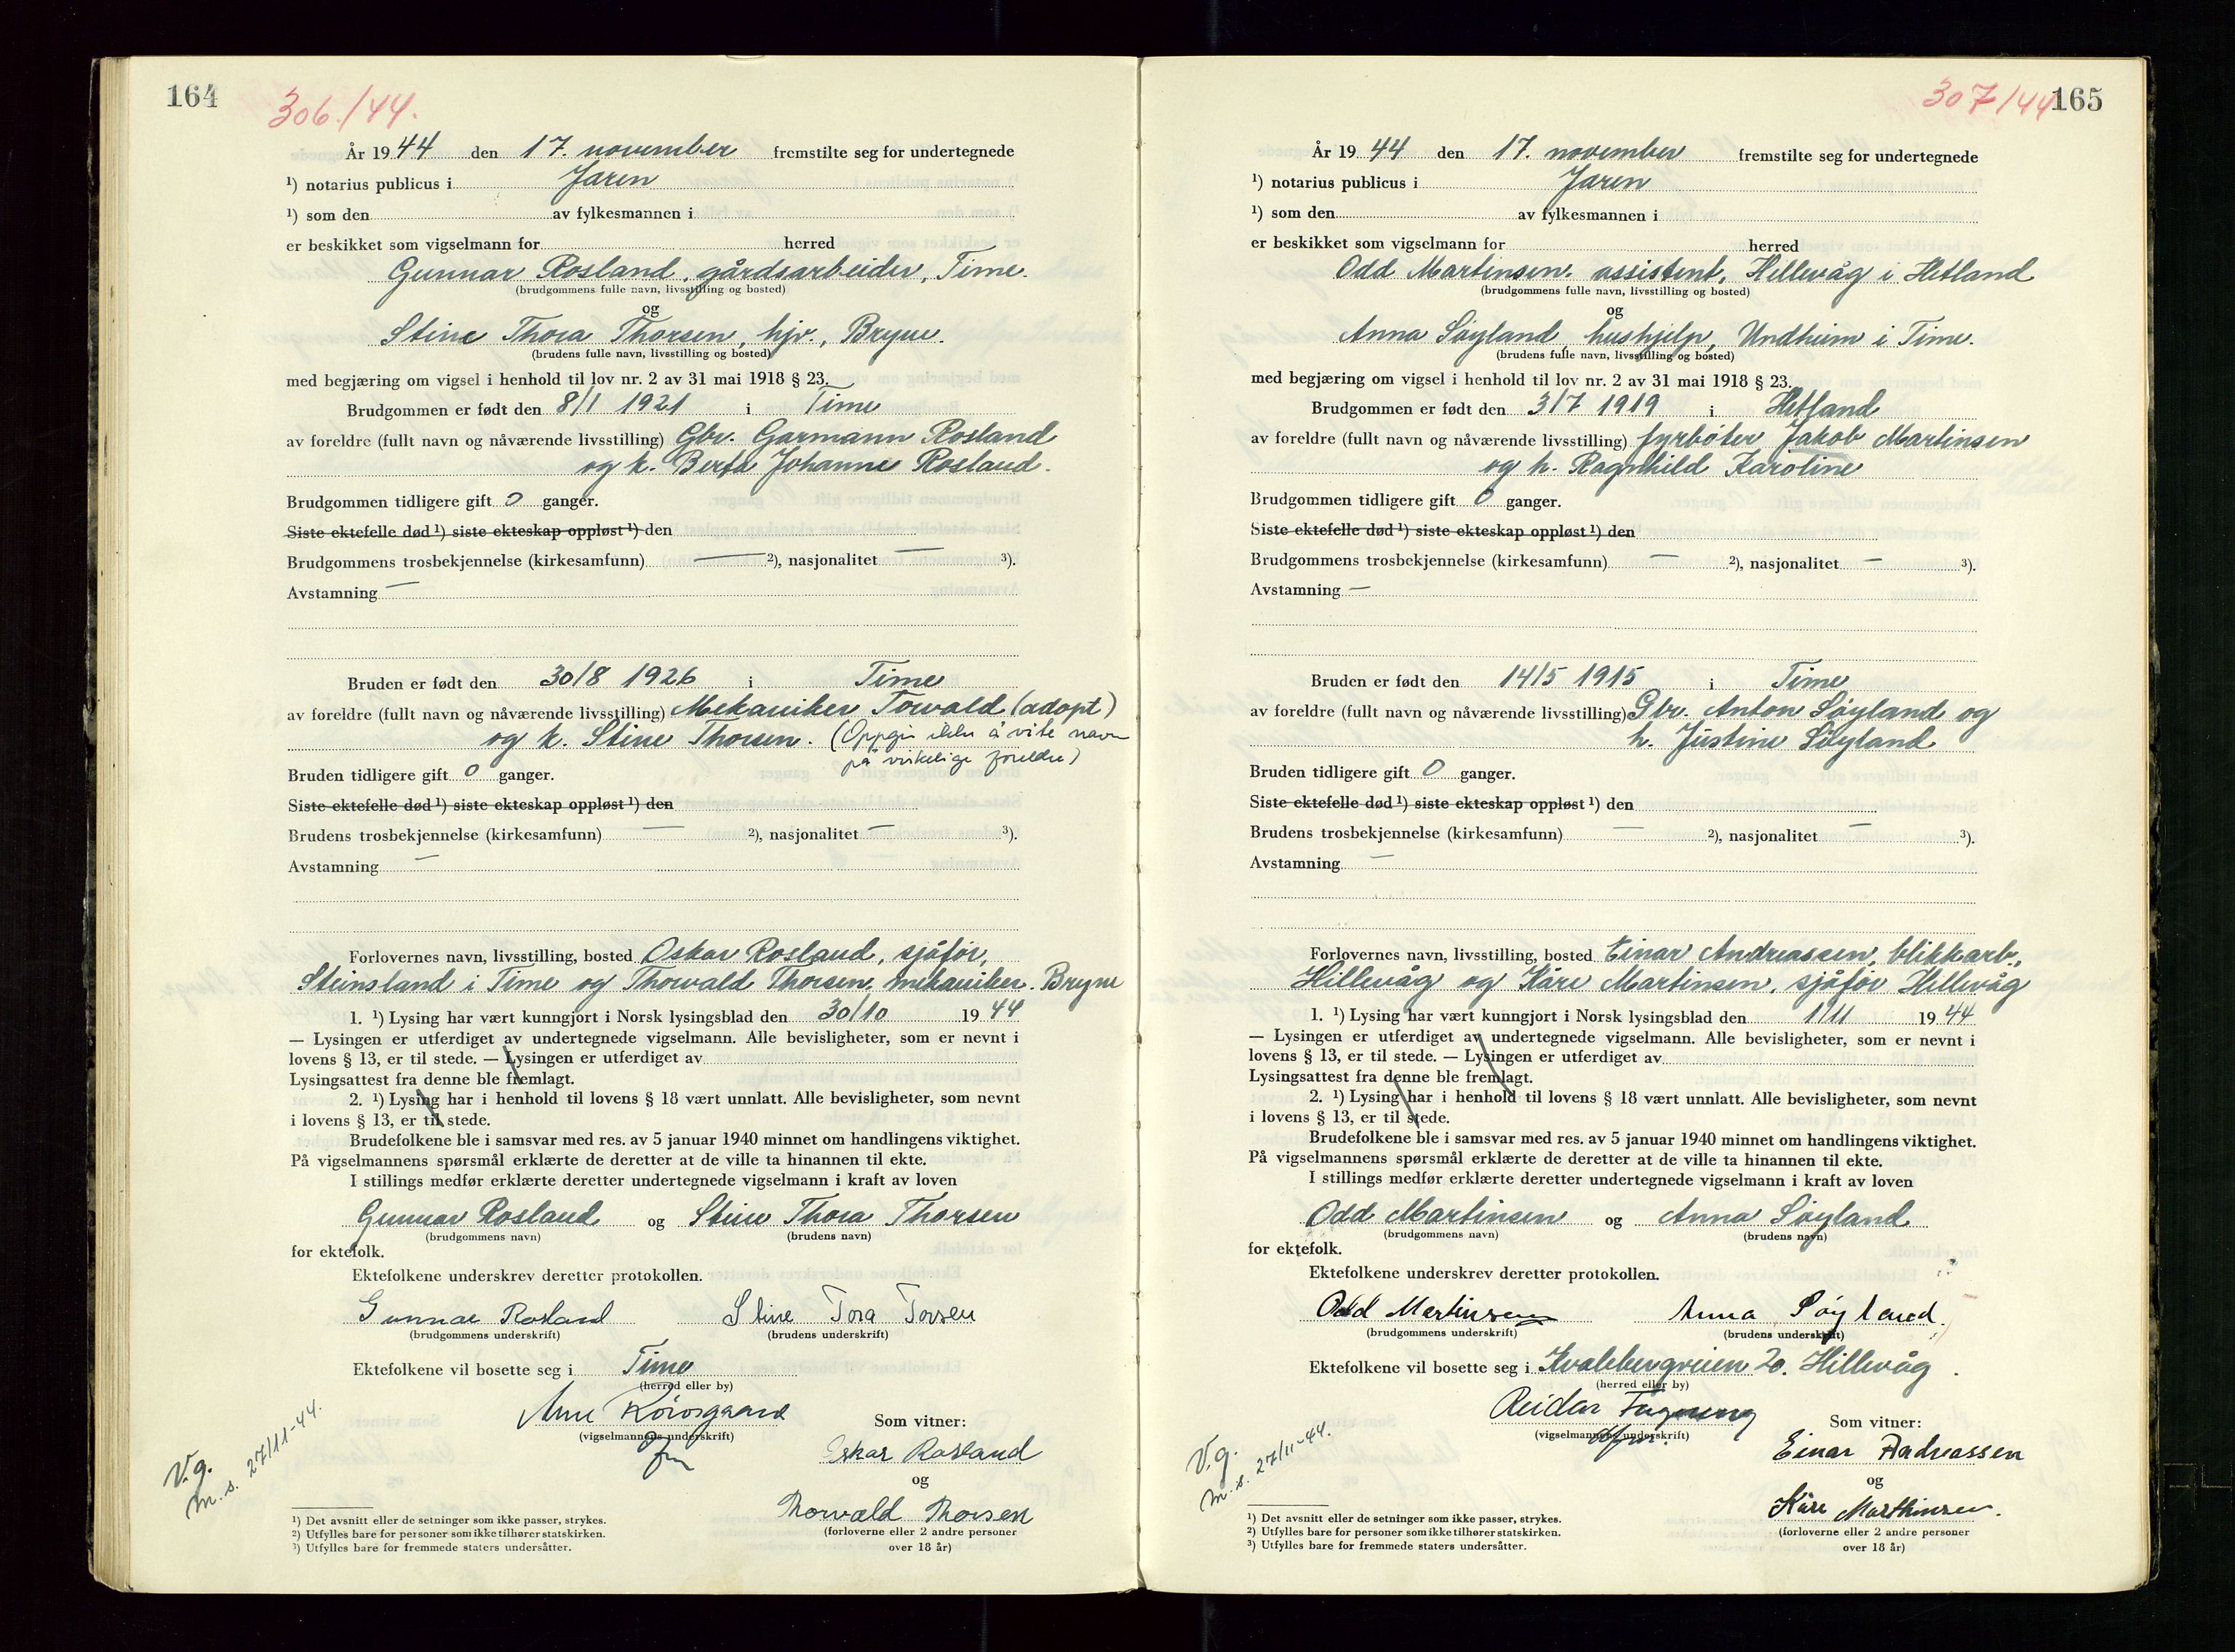 164
306./44.
År 1944 den 17. november fremstilte seg for undertegnede
¹) notarius publicus i Jæren
¹) som den av fylkesmannen i
er beskikket som vigselmann for herred
Gunnar Rosland, gårdsarbeider, Time.
(brudgommens fulle navn, livsstilling og bosted)
og
Stine Thora Thorsen, hjv., Bryne.
(brudens fulle navn, livsstilling og bosted)
med begjæring om vigsel i henhold til lov nr. 2 av 31 mai 1918 § 23.
Brudgommen er født den 8/1 1921 i Time
av foreldre (fullt navn og nåværende livsstilling) Gbr. Garmann Rosland
og h. Berta Johanne Rosland.
Brudgommen tidligere gift 0 ganger.
Siste ektefelle død ¹) siste ekteskap oppløst ¹) den
Brudgommens trosbekjennelse (kirkesamfunn) — ²), nasjonalitet — ³).
Avstamning —
Bruden er født den 30/8 1926 i Time
av foreldre (fullt navn og nåværende livsstilling) Mekaniker Torvald (adopt)
og h. Stine Thorsen. (Oppgir ikke å vite navn
på virkelige foreldre)
Bruden tidligere gift 0 ganger.
Siste ektefelle død ¹) siste ekteskap oppløst ¹) den
Brudens trosbekjennelse (kirkesamfunn) — ²), nasjonalitet — ³).
Avstamning —
Forlovernes navn, livsstilling, bosted Oskar Rosland, sjåfør,
Steinsland i Time og Thorvald Thorsen, mekaniker. Bryne
1. ¹) Lysing har vært kunngjort i Norsk lysingsblad den 30/10 1944
— Lysingen er utferdiget av undertegnede vigselmann. Alle bevisligheter, som er nevnt i
lovens § 13, er til stede. — Lysingen er utferdiget av
Lysingsattest fra denne ble fremlagt.
2. ¹) Lysing har i henhold til lovens § 18 vært unnlatt. Alle bevisligheter, som nevnt
i lovens § 13, er til stede.
Brudefolkene ble i samsvar med res. av 5 januar 1940 minnet om handlingens viktighet.
På vigselmannens spørsmål erklærte de deretter at de ville ta hinannen til ekte.
I stillings medfør erklærte deretter undertegnede vigselmann i kraft av loven
Gunnar Rosland og Stine Thora Thorsen
(brudgommens navn) (brudens navn)
for ektefolk.
Ektefolkene underskrev deretter protokollen.
Gunnar Rosland Stine Tora Torsen
(brudgommens underskrift) (brudens underskrift)
Ektefolkene vil bosette seg i Time
(herred eller by)
Arne
(vigselmannens underskrift)
Som vitner:
Oskar Rosland
og
Thorvald Thorsen
(forloverne eller 2 andre personer
over 18 år)
V.g.
m.s. 27/11-44.
¹) Det avsnitt eller de setninger som ikke passer, strykes.
²) Utfylles bare for personer som ikke tilhører statskirken.
³) Utfylles bare for fremmede staters undersåtter.
307/44
165
År 1944 den 17. november fremstilte seg for undertegnede
¹) notarius publicus i Jæren
¹) som den av fylkesmannen i
er beskikket som vigselmann for herred
Odd Martinsen, assistent, Hillevåg i Hetland
(brudgommens fulle navn, livsstilling og bosted)
og
Anna Søyland, hushjelp, Undheim i Time.
(brudens fulle navn, livsstilling og bosted)
med begjæring om vigsel i henhold til lov nr. 2 av 31 mai 1918 § 23.
Brudgommen er født den 3/7 1919 i Hetland
av foreldre (fullt navn og nåværende livsstilling) fyrbøter Jakob Martinsen
og h. Ragnhild Karoline
Brudgommen tidligere gift 0 ganger.
Siste ektefelle død ¹) siste ekteskap oppløst ¹) den
Brudgommens trosbekjennelse (kirkesamfunn) — ²), nasjonalitet — ³).
Avstamning —
Bruden er født den 14/5 1915 i Time
av foreldre (fullt navn og nåværende livsstilling) Gbr. Anton Søyland og
h. Justine Søyland
Bruden tidligere gift 0 ganger.
Siste ektefelle død ¹) siste ekteskap oppløst ¹) den
Brudens trosbekjennelse (kirkesamfunn) — ²), nasjonalitet — ³).
Avstamning —
Forlovernes navn, livsstilling, bosted Einar Andreassen, blikkarb.,
Hillevåg og Kåre Martinsen, sjåfør Hillevåg
1. ¹) Lysing har vært kunngjort i Norsk lysingsblad den 1/11 1944
— Lysingen er utferdiget av undertegnede vigselmann. Alle bevisligheter, som er nevnt i
lovens § 13, er til stede. — Lysingen er utferdiget av
Lysingsattest fra denne ble fremlagt.
2. ¹) Lysing har i henhold til lovens § 18 vært unnlatt. Alle bevisligheter, som nevnt
i lovens § 13, er til stede.
Brudefolkene ble i samsvar med res. av 5 januar 1940 minnet om handlingens viktighet.
På vigselmannens spørsmål erklærte de deretter at de ville ta hinannen til ekte.
I stillings medfør erklærte deretter undertegnede vigselmann i kraft av loven
Odd Martinsen og Anna Søyland
(brudgommens navn) (brudens navn)
for ektefolk.
Ektefolkene underskrev deretter protokollen.
Odd Martinsen Anna Søyland.
(brudgommens underskrift) (brudens underskrift)
Ektefolkene vil bosette seg i Kvalebergveien 20. Hillevåg.
(herred eller by)
Reidar
(vigselmannens underskrift)
Som vitner:
Einar Andreassen
og
Kåre Marthinsen.
(forloverne eller 2 andre personer
over 18 år)
V.g.
m.s. 27/11-44.
¹) Det avsnitt eller de setninger som ikke passer, strykes.
²) Utfylles bare for personer som ikke tilhører statskirken.
³) Utfylles bare for fremmede staters undersåtter.